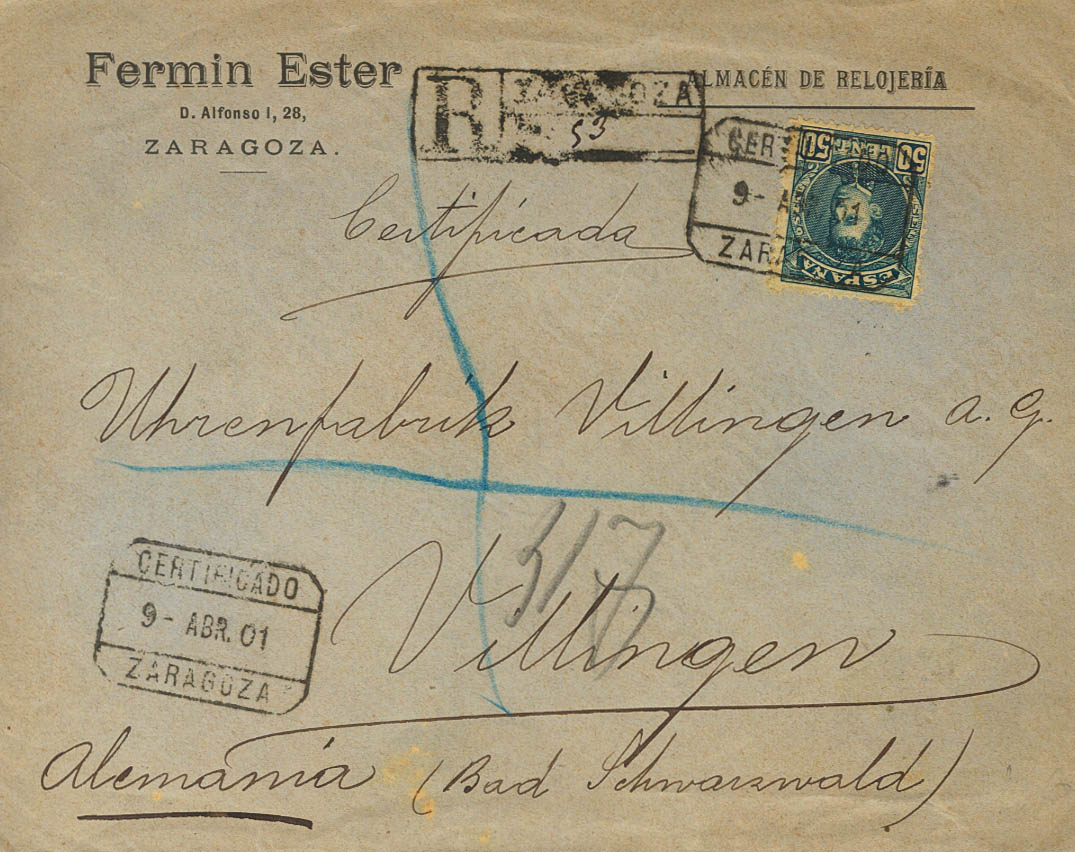 Fermin Ester
D. Alfonso I, 28,
ZARAGOZA.
ALMACÉN DE RELOJERÍA
R ZARAGOZA
53
CERT
9- A 1
ZARA ZA
50 CENT 50
ESPAÑA
Certificada
Uhrenfabrik Villingen a. g.
317
Villingen
CERTIFICADO
9- ABR. 01
ZARAGOZA
Alemania (Bad Schwarzwald)